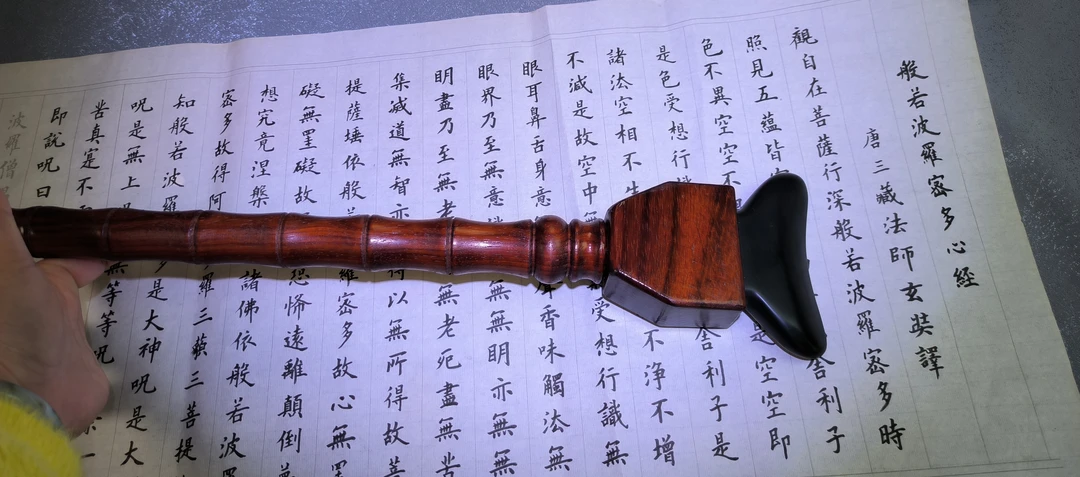 般若波羅密多心經
唐三藏法師玄奘譯
觀自在菩薩行深般若波羅密多時
照見五蘊皆 舍利子
色不異空空不 是空空即
是色受想行 舍利子是
諸法空相不生 不淨不增
不減是故空中無 受想行識無
眼耳鼻舌身意 香味觸法無
眼界乃至無意 無無明亦無無
明盡乃至無老 無老死盡無苦
集滅道無智亦 以無所得故菩
提薩埵依般 羅密多故心無罣
礙無罣礙故 恐怖遠離顛倒
想究竟涅槃 諸佛依般若波
密多故得阿 羅三藐三菩提
知般若波羅 多是大神呪是大
呪是無上 無等等呪
苦真寔不
即說呪曰
波羅僧